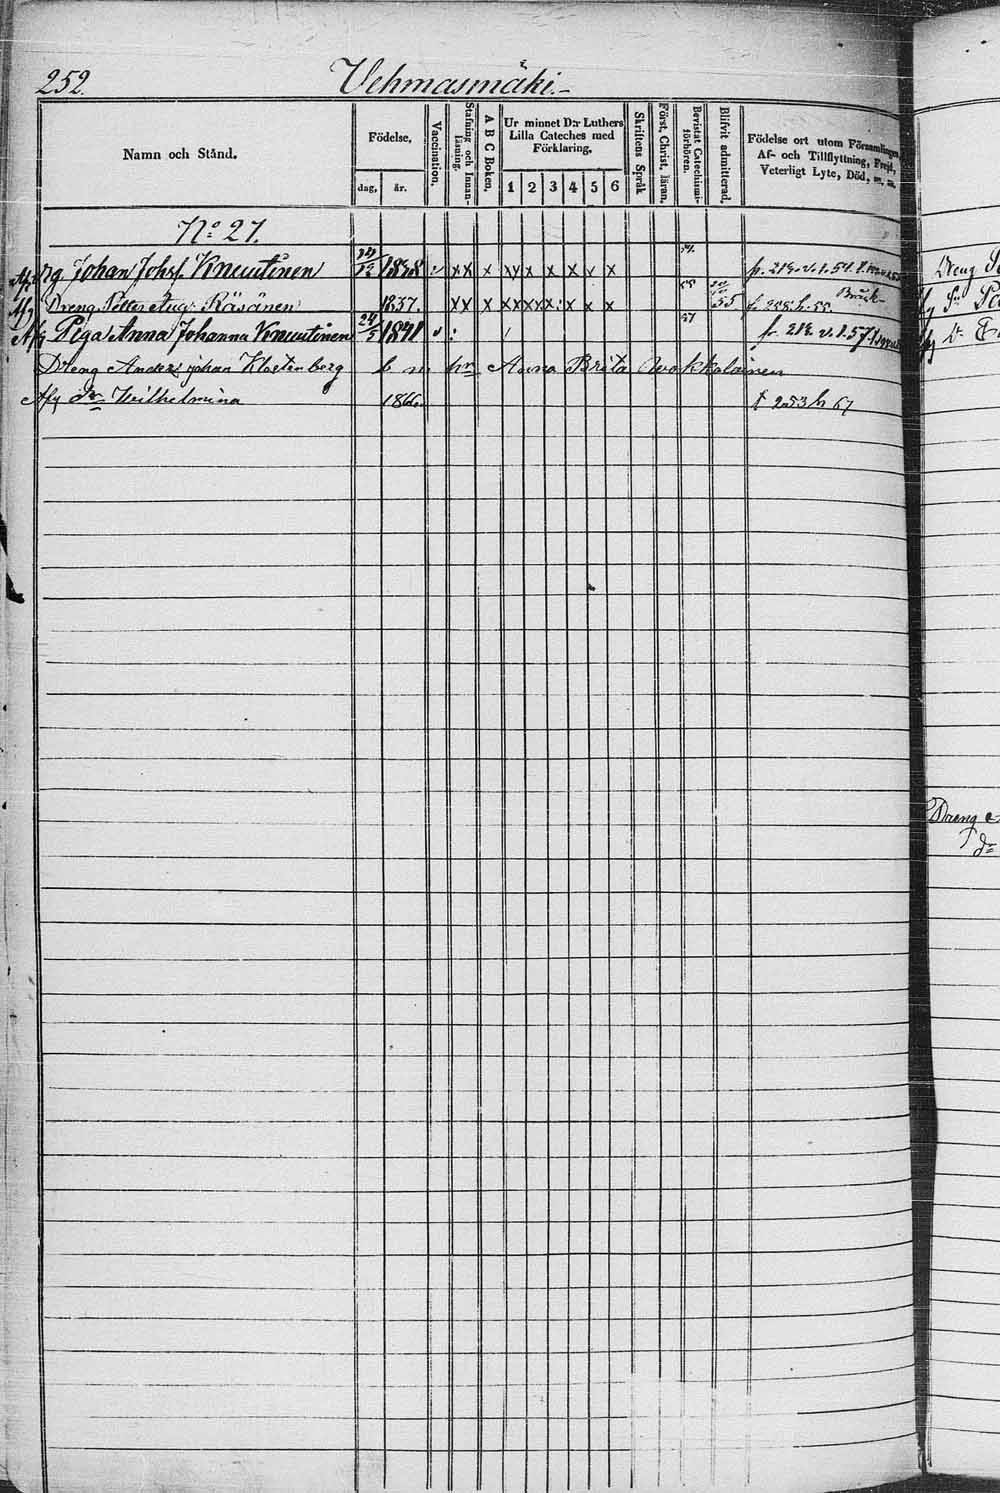 252.
Vehmasmäki.
Namn och Stånd.
Födelse,
dag, år.
Vaccination.
Stafning och Innanläsning.
A B C Boken.
Ur minnet D:r Luthers Lilla Cateches med Förklaring,
1 2 3 4 5 6
Skriftens Språk
Först. Christ. läran.
Bevistat Catechismiförhören.
Blifvit admitterad,
Födelse ort utom Församlingen, Af- och Tillflyttning, Frejd, Veterligt Lyte, Död, m. m.
No 27.
Dg Johan Johsf. Knuutinen 1838 x x x x y x x x v x
Afg Dreng Petter Aug. Räsänen 1837. x x x x x x x x x x 55 55 f. 258. h. 55.
Afg Piga Anna Johanna Knuutinen 24/5 1841 57 p. 212 v. 1. 57.
Dreng Anders Johan Klostenberg b m hn Anna Brita Wokkolainen
Afg dr Wilhelmina 1866. f 253 h 67
Dreng
Dreng
dr